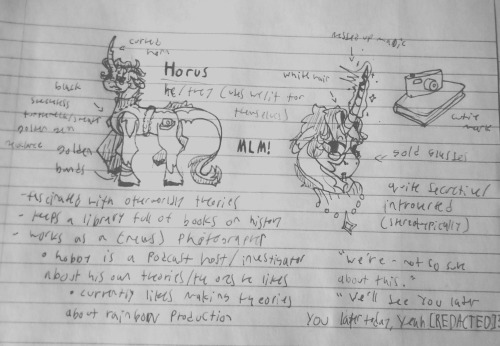 curved
horn
messed up magic
Horus
he/they (uses we/it for
themselves)
white hair
black
sleeveless
golden
bands
MLM!
cutie
mark
gold glasses
- fascinated with otherworldly theories
- keeps a library full of books on history
- works as a (news) photographer
• hobby is a podcast host/investigator
about his own theories/the ones he likes
• currently likes making theories
about rainbow production
quite secretive/
introverted
(stereotypically)
"we're - not so sure
about this."
"We'll see you later
you later today, yeah [REDACTED]?